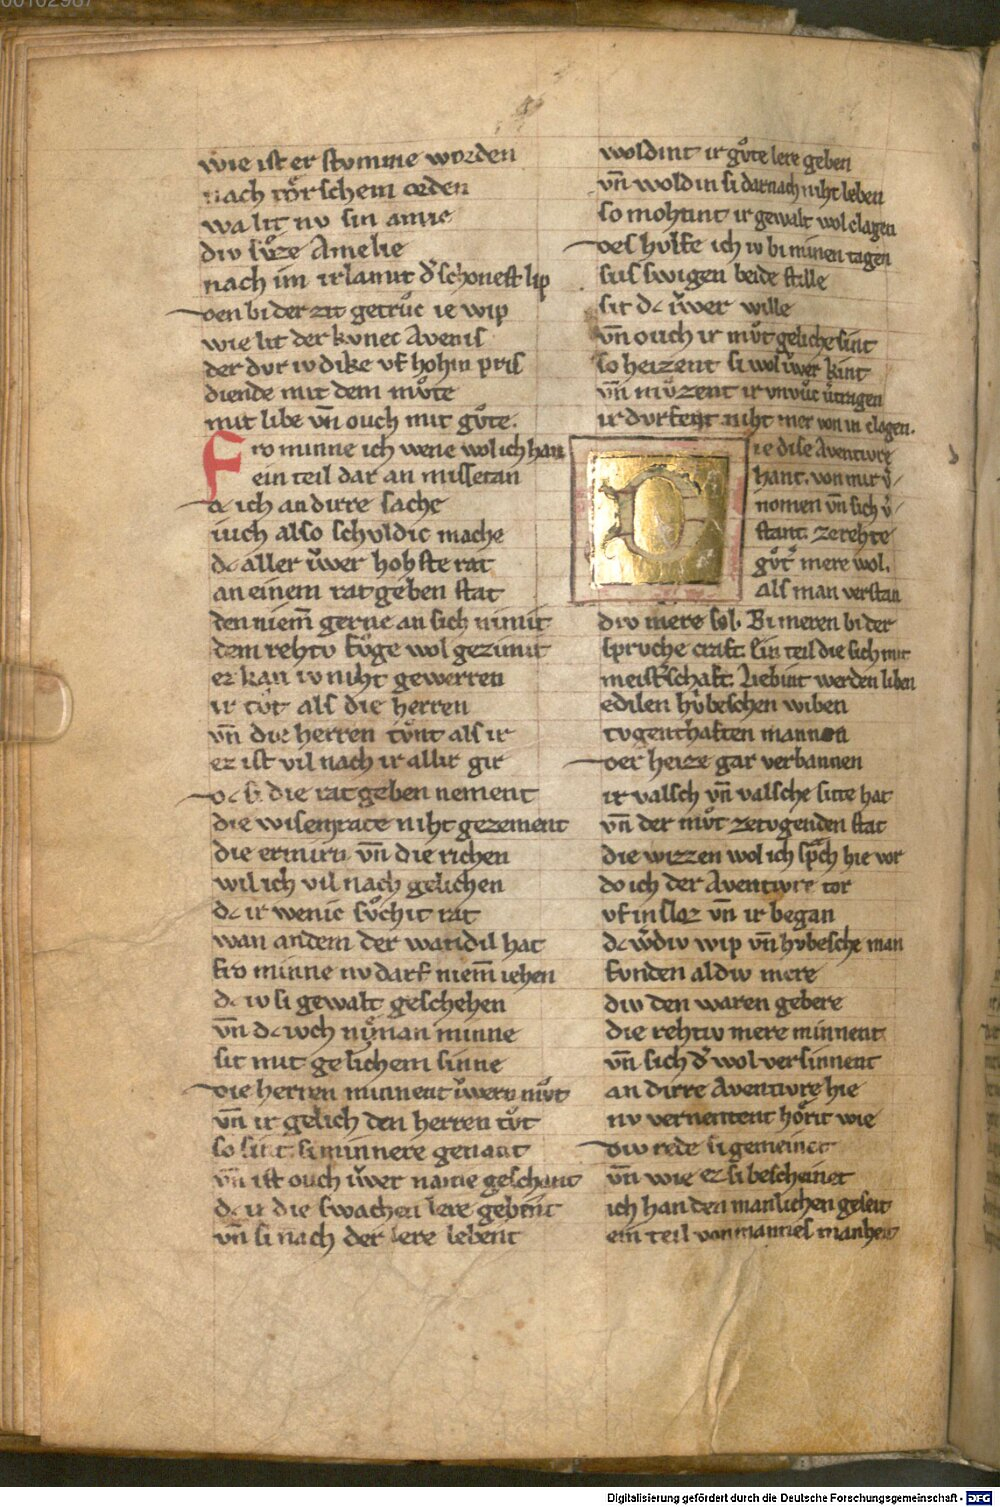 wie ist er stvmme worden
nach tôrschem orden
wa lit nv sin amie
div sůze Amelie
nach im irlamit d̾ schonest lip
den bi der zit getrůc ie wip
wie lit der kvnec Avenis
der dvr ivdike vf hohin pris
diende mit dem můte
mit libe vn̄ ouch mit gůte.
Fro minne ich wene wol ich han
ein teil dar an missetan
dc ich an dirre sache
iuch also schvldic mache
dc aller ůwer hohste rat
an einem ratgeben stat
den niem̄ gerne an sich nimit
dem rehtv fůge wol gezimit
ez kan iv niht gewerren
ir tůt als die herren
vn̄ die herren tůnt als ir
ez ist vil nach ir allir gir
dc si die ratgeben nement
die wisem rate niht gezement
die ermirn vn̄ die richen
wil ich vil nach gelichen
dc ir wenic sůchit rat
wan an dem der wandil hat
fro minne nv darf niem̄ iehen
dc iv si gewalt geschehen
vn̄ dc ivch nůman minne
sit mit gelichem sinne
die herren minnent ůwern můt
vn̄ ir gelich den herren tůt
so sint si minnere genant
vn̄ ist ouch ůwer name geschant
dc ir die swachen lere gebint
vn̄ si nach der lere lebent
woldint ir gůte lere geben
vn̄ woldin si darnach niht leben
so mohtint ir gewalt wol clagen
des hvlfe ich iv bi minen tagen
sus swigen beide stille
sit dc ůwer wille
vn̄ ouch ir můt geliche sint
so heizent si wol ůwer kint
vn̄ můzent ir vnvůc v̾tragen
ir dvrfent niht mer von in clagen.
Die dise Aventivre
hant. von mir v̾
nomen vn̄ sich v̾
stant. ze rehte
gůt̾ mere wol.
Als man verstan
div mere sol. Bi meren bi der
sprvche craft. Ein teil die sich mit
meist̾schaft. Liebint werden liben
edilen hv̊beschen wiben
tvgenthaften mannen
der heize gar verbannen
ir valsch vn̄ valsche sitte hat
vn̄ der můt ze tvgenden stat
die wizzen wol ich sp̃ch hie vor
do ich der Aventivre tor
vf in sloz vn̄ ir began
dc w̾div wip vn̄ hvbesche man
fvnden al div mere
div den waren gebere
die rehtiv mere minnent
vn̄ sich d̾ wol versinnent
an dirre Aventivre hie
nv vernement hôrit wie
div rede si gemeinet
vn̄ wie ez si bescheinet
ich han den manlichen geseit
ein teil von mannes manheit
Digitalisierung gefördert durch die Deutsche Forschungsgemeinschaft - DFG